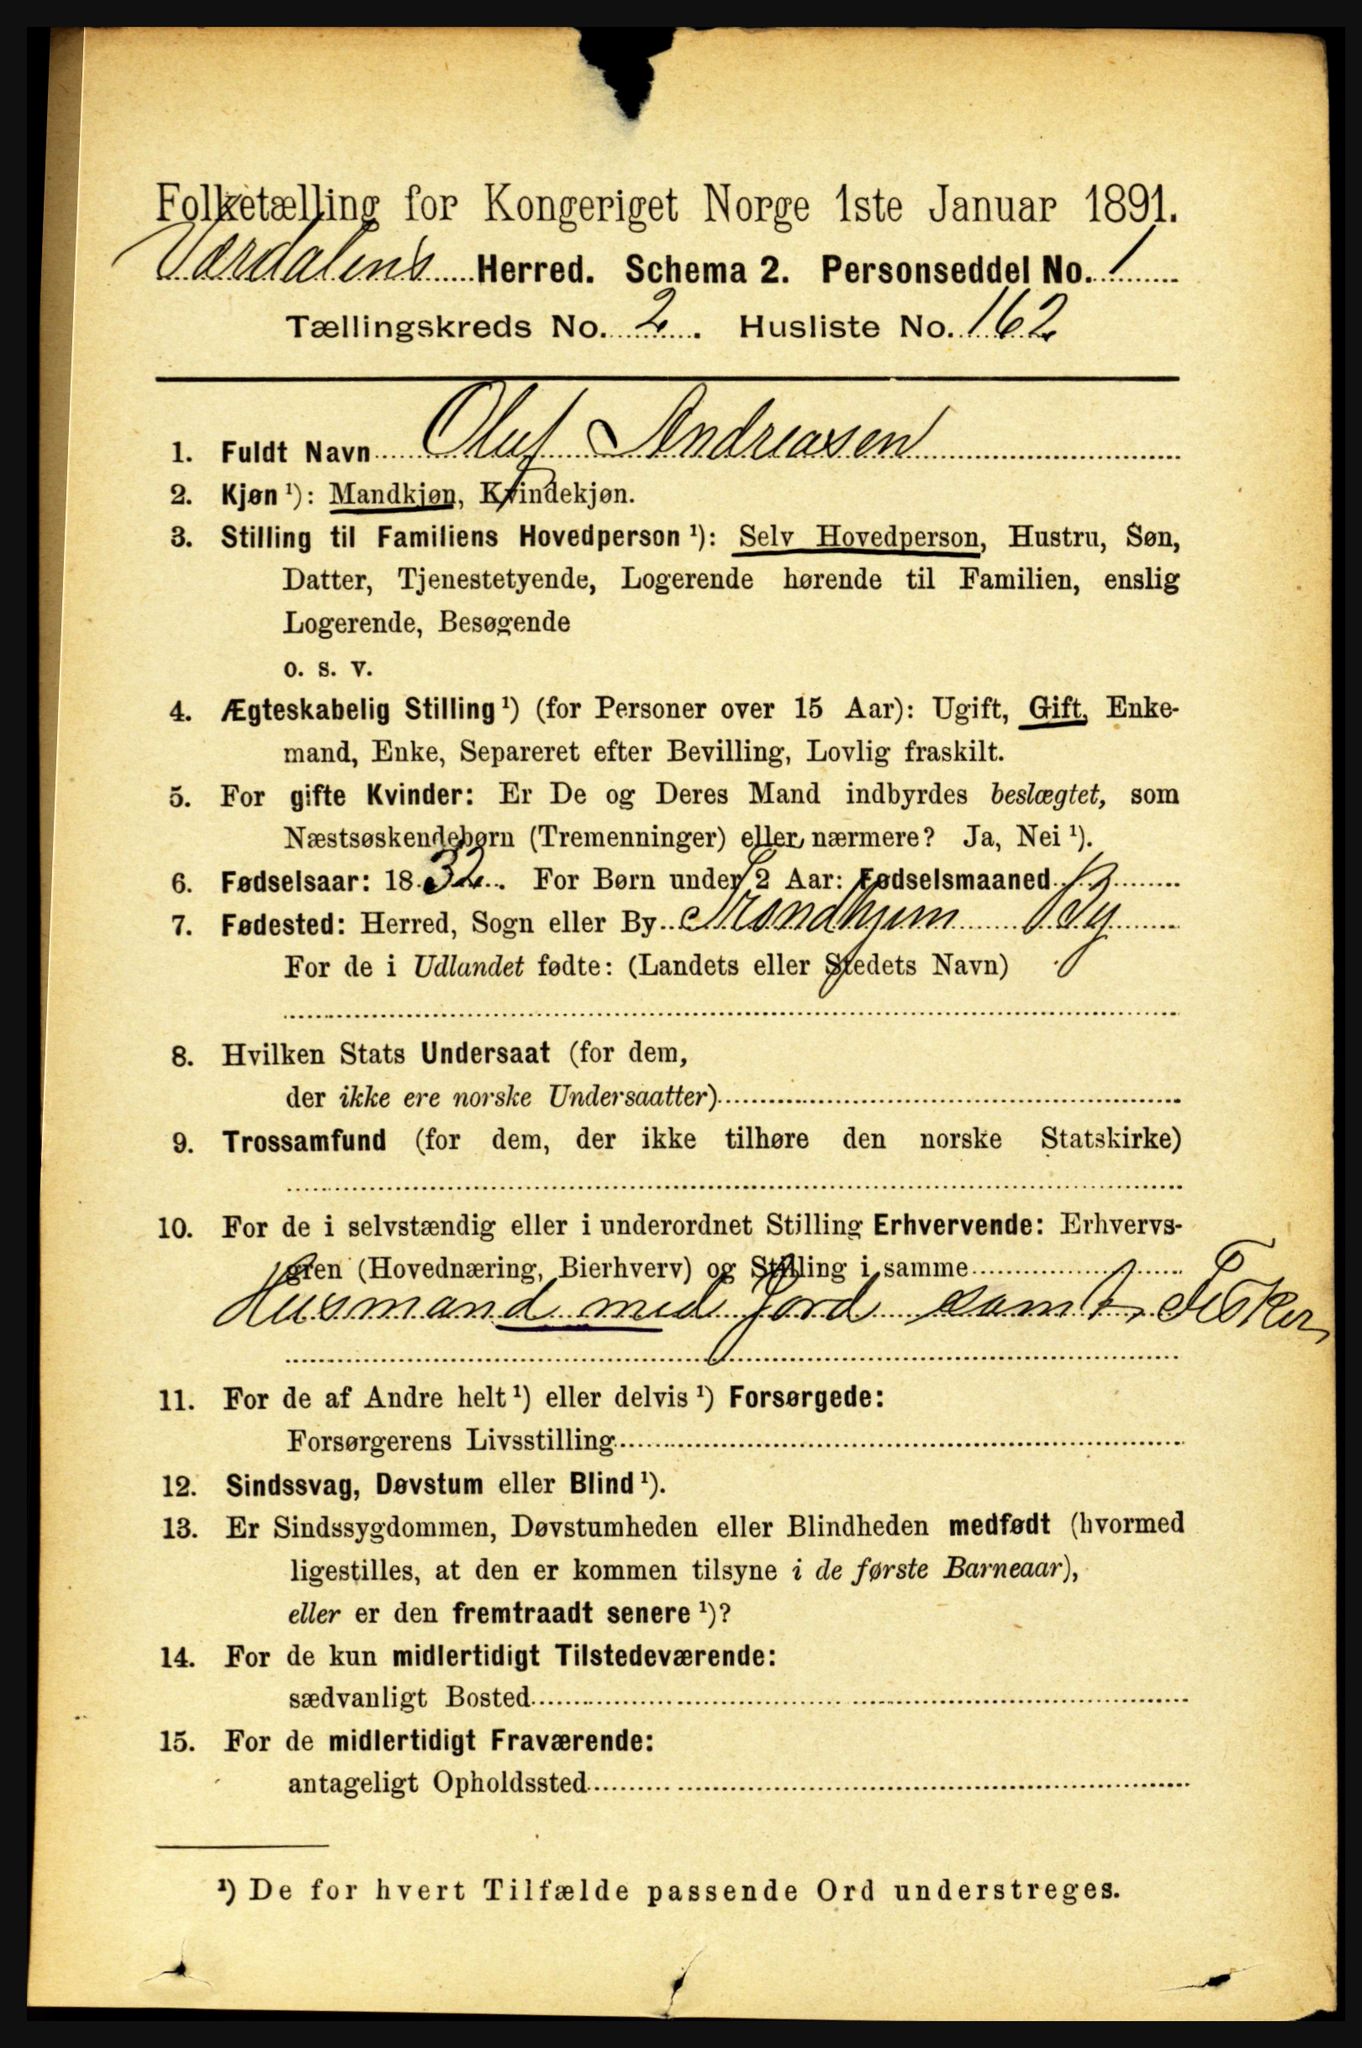 Folketælling for Kongeriget Norge 1ste Januar 1891.
Værdalens Herred. Schema 2. Personseddel No. 1
Tællingskreds No. 2. Husliste No. 162
1. Fuldt Navn Oluf Andreasen
2. Kjøn¹): Mandkjøn, Kvindekjøn.
3. Stilling til Familiens Hovedperson¹): Selv Hovedperson, Hustru, Søn,
Datter, Tjenestetyende, Logerende hørende til Familien, enslig
Logerende, Besøgende
o. s. v.
4. Ægteskabelig Stilling¹) (for Personer over 15 Aar): Ugift, Gift, Enke-
mand, Enke, Separeret efter Bevilling, Lovlig fraskilt.
5. For gifte Kvinder: Er De og Deres Mand indbyrdes beslægtet, som
Næstsøskendebørn (Tremenninger) eller nærmere? Ja, Nei¹).
6. Fødselsaar: 1832. For Børn under 2 Aar: Fødselsmaaned
7. Fødested: Herred, Sogn eller By Trondhjem By
For de i Udlandet fødte: (Landets eller Stedets Navn)
8. Hvilken Stats Undersaat (for dem,
der ikke ere norske Undersaatter)
9. Trossamfund (for dem, der ikke tilhøre den norske Statskirke)
10. For de i selvstændig eller i underordnet Stilling Erhvervende: Erhvervs-
gren (Hovednæring, Bierhverv) og Stilling i samme
Husmand med Jord samt Fisker
11. For de af Andre helt¹) eller delvis¹) Forsørgede:
Forsørgerens Livsstilling
12. Sindssvag, Døvstum eller Blind¹).
13. Er Sindssygdommen, Døvstumheden eller Blindheden medfødt (hvormed
ligestilles, at den er kommen tilsyne i de første Barneaar),
eller er den fremtraadt senere¹)?
14. For de kun midlertidigt Tilstedeværende:
sædvanligt Bosted
15. For de midlertidigt Fraværende:
antageligt Opholdssted
¹) De for hvert Tilfælde passende Ord understreges.